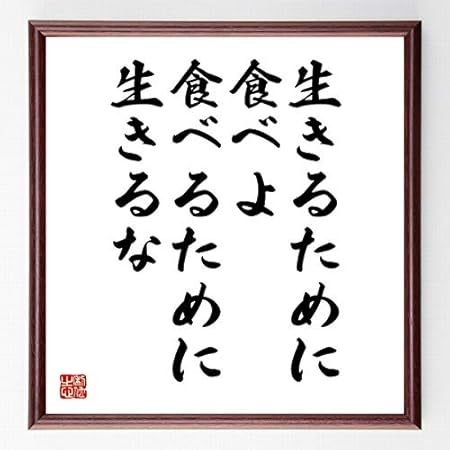 生きるために
食べよ
食べるために
生きるな